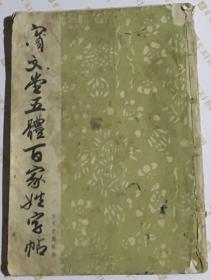 寶文堂五體百家姓字帖